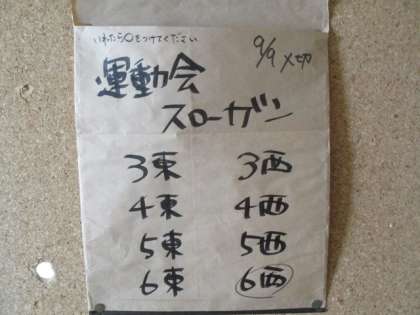 いれたら○をつけてください
9/9〆切
運動会
スローガン
3東 3西
4東 4西
5東 5西
6東 6西